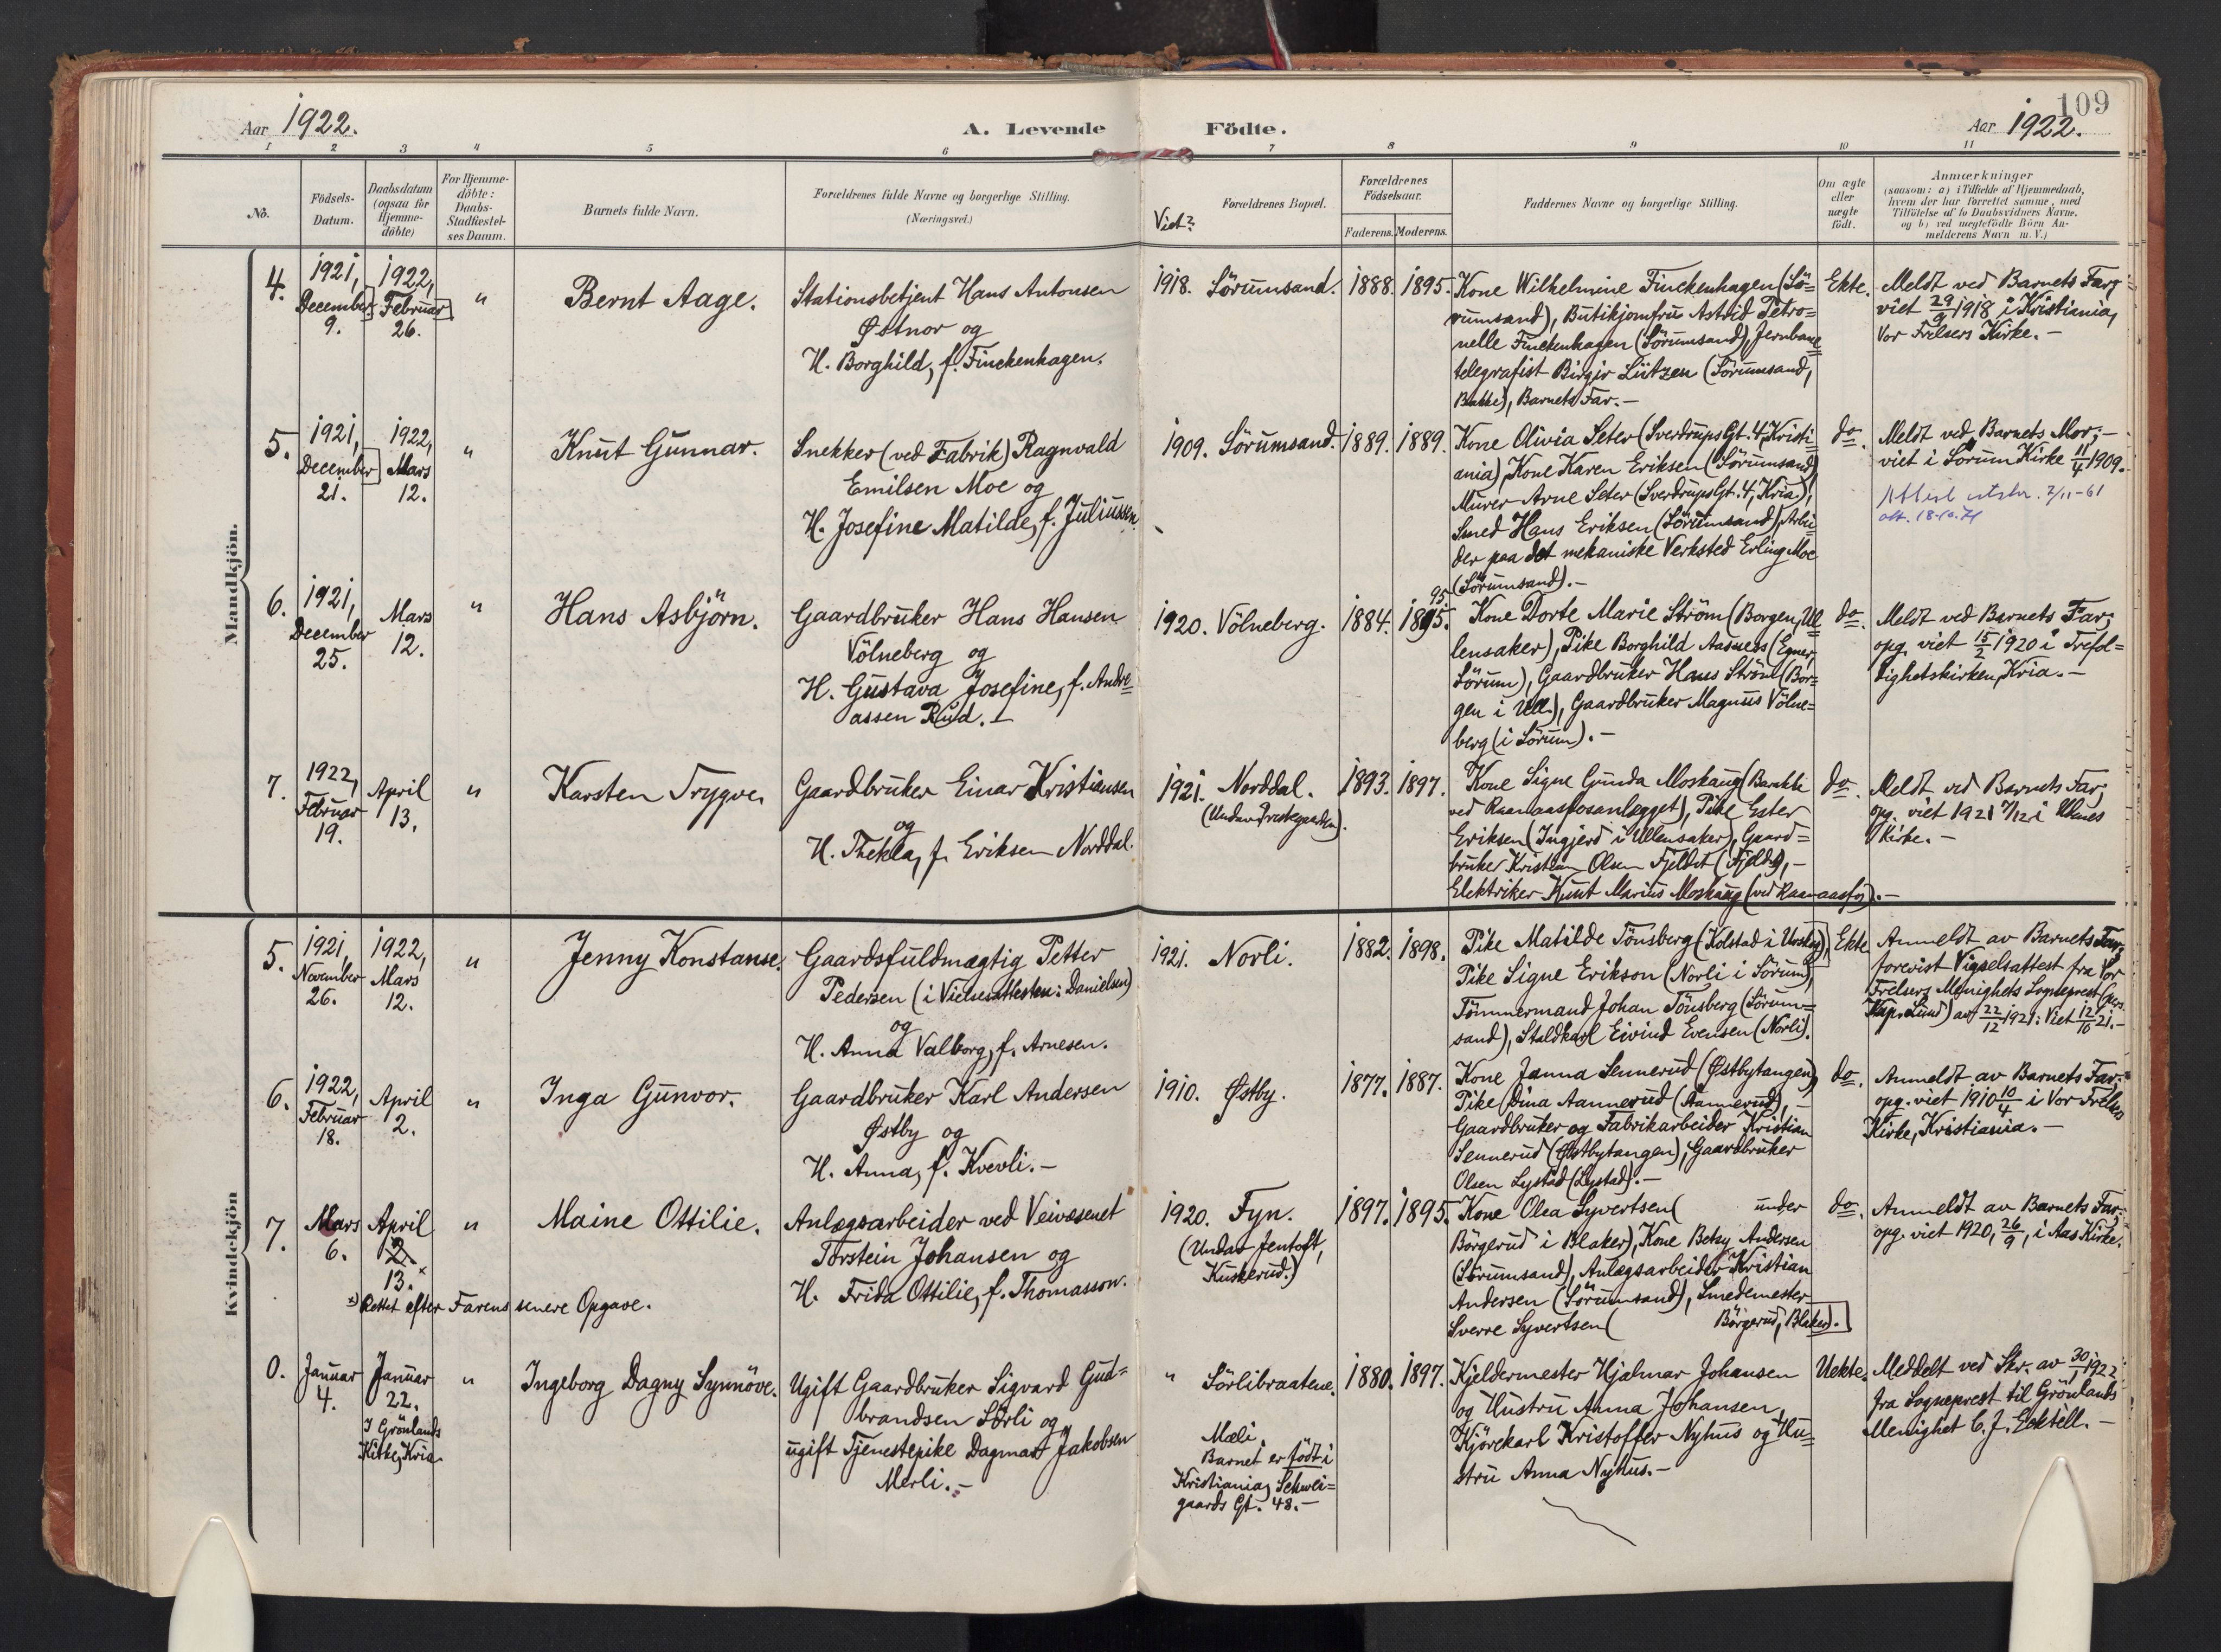 109
Aar 1922.
A. Levende Födte.
Aar 1922.
1 2 3 4 5 6 7 8 9 10 11
No.
Födsels-
Datum.
Daabsdatum
(ogsaa for
Hjemme-
döbte)
For Hjemme-
döbte:
Daabs-
Stadfæstel-
ses Datum.
Barnets fulde Navn.
Forældrenes fulde Navne og borgerlige Stilling.
(Næringsvei.)
Viet?
Forældrenes Bopæl.
Forældrenes
Födselsaar.
Faderens. Moderens.
Faddernes Navne og borgerlige Stilling.
Om ægte
eller
uægte
födt.
Anmærkninger
(saasom: a) i Tilfælde af Hjemmedaab,
hvem der har forrettet samme, med
Tilföielse af to Daabsvidners Navne,
og b) ved uægtefödte Börn An-
melderens Navn m. V.)
Mandkjön.
4.
1921,
December
9.
1922,
Februar
26.
"
Bernt Aage.
Stationsbetjent Hans Antonsen
Østnor og
H. Borghild, f. Finckenhagen.
1918. Sörumsand. 1888. 1895.
Kone Wilhelmine Finckenhagen (Sö=
rumsand), Butikjomfru Astrid Petro=
nelle Finckenhagen (Sörumsand), Jernbane
telegrafist Birger Lützen (Sörumsand,
Bakke), Barnets Far.-
Ekte.
Meldt ved Barnets Far;
viet 29/9 1918 i Kristiania,
Vor Frelsers Kirke.-
5.
1921,
December
21.
1922,
Mars
12.
"
Knut Gunnar.
Snekker (ved Fabrik) Ragnvald
Emilsen Moe og
H. Josefine Matilde, f. Juliussen.
1909. Sörumsand. 1889. 1889.
Kone Olivia Seter (Sverdrups Gt. 4, Kristi=
ania), Kone Karen Eriksen (Sörumsand),
Murer Arne Seter (Sverdrups Gt. 4, Kria),
Smed Hans Eriksen (Sörumsand), Arbei=
der paa det mekaniske Verksted Erling Moe
(Sörumsand).-
do.
Meldt ved Barnets Mor;-
viet i Sörum Kirke 11/4 1909.
utstr. 2/11-61
att. 18.10.71
6.
1921,
December
25.
Mars
12.
"
Hans Asbjörn.
Gaardbruker Hans Hansen
Völneberg og
H. Gustava Josefine, f. Andre=
assen Rud.-
1920. Völneberg. 1884. 1895. 95.
Kone Dorte Marie Ström (Borgen, Ul=
lensaker), Pike Borghild Aasness (Egner,
Sörum), Gaardbruker Hans Ström (Bor=
gen i Ull.), Gaardbruker Magnus Völne=
berg (i Sörum).-
do.
Meldt ved Barnets Far;
opg. viet 15/2 1920 i Trefol=
dighetskirken, Kria.-
7.
1922,
Februar
19.
April
13.
"
Karsten Trygve.
Gaardbruker Einar Kristiansen
og
H. Thekla, f. Eriksen Norddal.
1921. Norddal.
(Under Prestegaarden).
1893. 1897.
Kone Signe Gunda Moskaug (Barakke
ved Raanaasfosanlegget), Pike Ester
Eriksen (Ingjerd i Ullensaker), Gaard=
bruker Kristian Olsen Fjeldet (Fjeldet),-
Elektriker Knut Marius Moskaug (ved Raanaasfos).-
do.
Meldt ved Barnets Far;
opg. viet 1921 7/12 i Udenes
Kirke.-
Kvindekjön
5.
1921,
November
26.
1922,
Mars
12.
"
Jenny Konstanse.
Gaardsfuldmægtig Petter
Pedersen (i Vielsesattesten: Danielsen)
og
H. Anna Valborg, f. Arnesen.
1921. Norli. 1882. 1898.
Pike Matilde Tönsberg (Kolstad i Urskog),
Pike Signe Erikson (Norli i Sörum),
Tömmermand Johan Tönsberg (Sörum=
sand), Staldkarl Eivind Evensen (Norli).
Ekte
Anmeldt av Barnets Far;
forevist Vigselsattest fra Vor
Frelsers Menighets Sogneprest (pers.
Kap. Lund) av 22/12 1921: Viet 12/10 21.-
6.
1922,
Februar
18.
April
2.
"
Inga Gunvor.
Gaardbruker Karl Andersen
Østby og
H. Anna, f. Kvevli.-
1910. Østby. 1877. 1887.
Kone Janna Sennerud (Østbytangen),
Pike Dina Aannerud (Aannerud),-
Gaardbruker og Fabrikarbeider Kristian
Sennerud (Østbytangen), Gaardbruker
Olsen Lystad (Lystad).-
do.
Anmeldt av Barnets Far;
opg. viet 1910 10/4 i Vor Frelsers
Kirke, Kristiania.-
7.
Mars
6.
April
2.
13.
"
x) Rettet efter Farens senere Opgave.
Maine Ottilie.
Anlægsarbeider ved Veivæsenet
Torstein Johansen og
H. Frida Ottilie, f. Thomasson.
1920. Fyn.
(Under Jentoft,
Kuskerud.)
1897. 1895.
Kone Olea Syvertsen ( under
Börgerud i Blaker), Kone Betsy Andersen
(Sörumsand), Anlægsarbeider Kristian
Andersen (Sörumsand), Smedemester
Sverre Syvertsen ( Börgerud, Blaker).
do.
Anmeldt av Barnets Far;
opg. viet 1920, 26/9, i Aas Kirke.
0.
Januar
4.
Januar
22.
I Grönlands
Kirke, Kria.
"
Ingeborg Dagny Synnöve.
Ugift Gaardbruker Sigvard Gud=
brandsen Sörli og
ugift Tjenestepike Dagmar Jakobsen
Merli.-
" Sörlibraatene.
Mæli.
Barnet er födt i
Kristiania, Schwei=
gaards Gt. 48.-
1880. 1897.
Kjeldermester Hjalmar Johansen
og Hustru Anna Johansen,
Kjörekarl Kristoffer Nyhus og Hu=
stru Anna Nyhus.-
Uekte.
Meddelt ved Skr. av 30/1 1922
fra Sogneprest til Grönlands
Menighet C. J. Ecktell.-